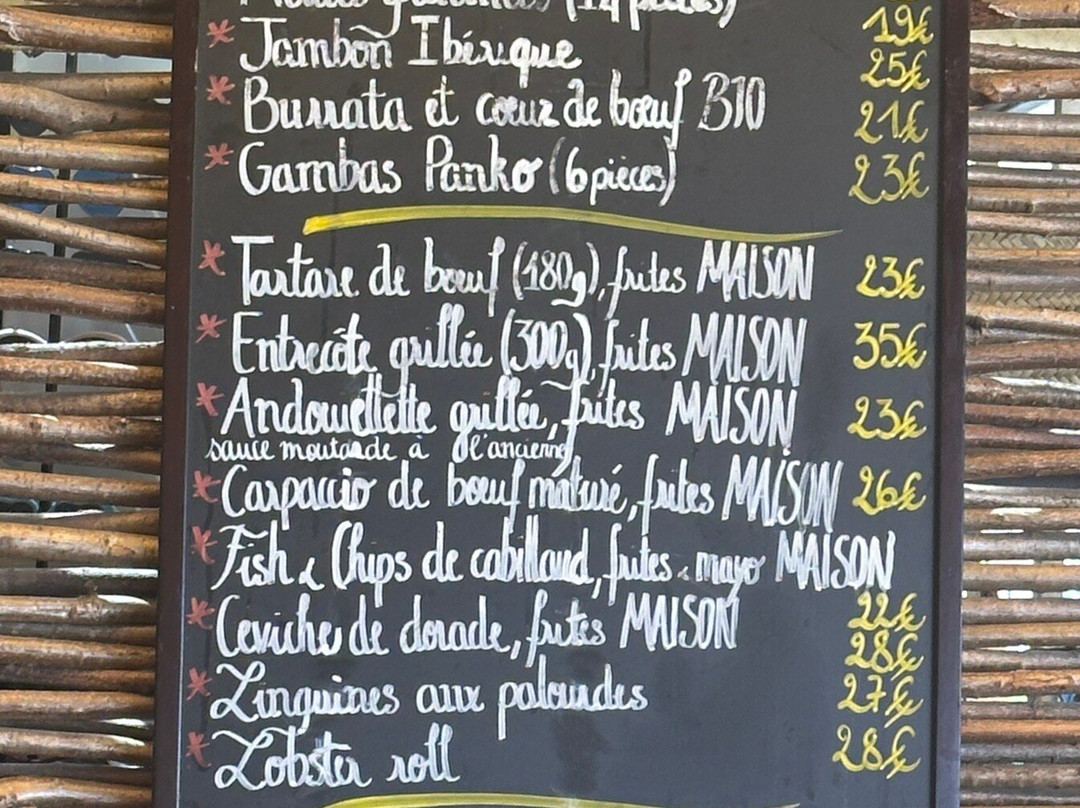 (14 pièces) 19€
* Jambon Ibérique 25€
* Burrata et cœur de bœuf BIO 21€
* Gambas Panko (6 pièces) 23€
* Tartare de bœuf (180g), frites MAISON 23€
* Entrecôte grillée (300g), frites MAISON 35€
* Andouillette grillée, frites MAISON 23€
sauce moutarde à l'ancienne
* Carpaccio de bœuf maturé, frites MAISON 26€
* Fish & Chips de cabillaud, frites & mayo MAISON
22€
* Ceviche de dorade, frites MAISON 28€
* Linguines aux palourdes 27€
* Lobster roll 28€